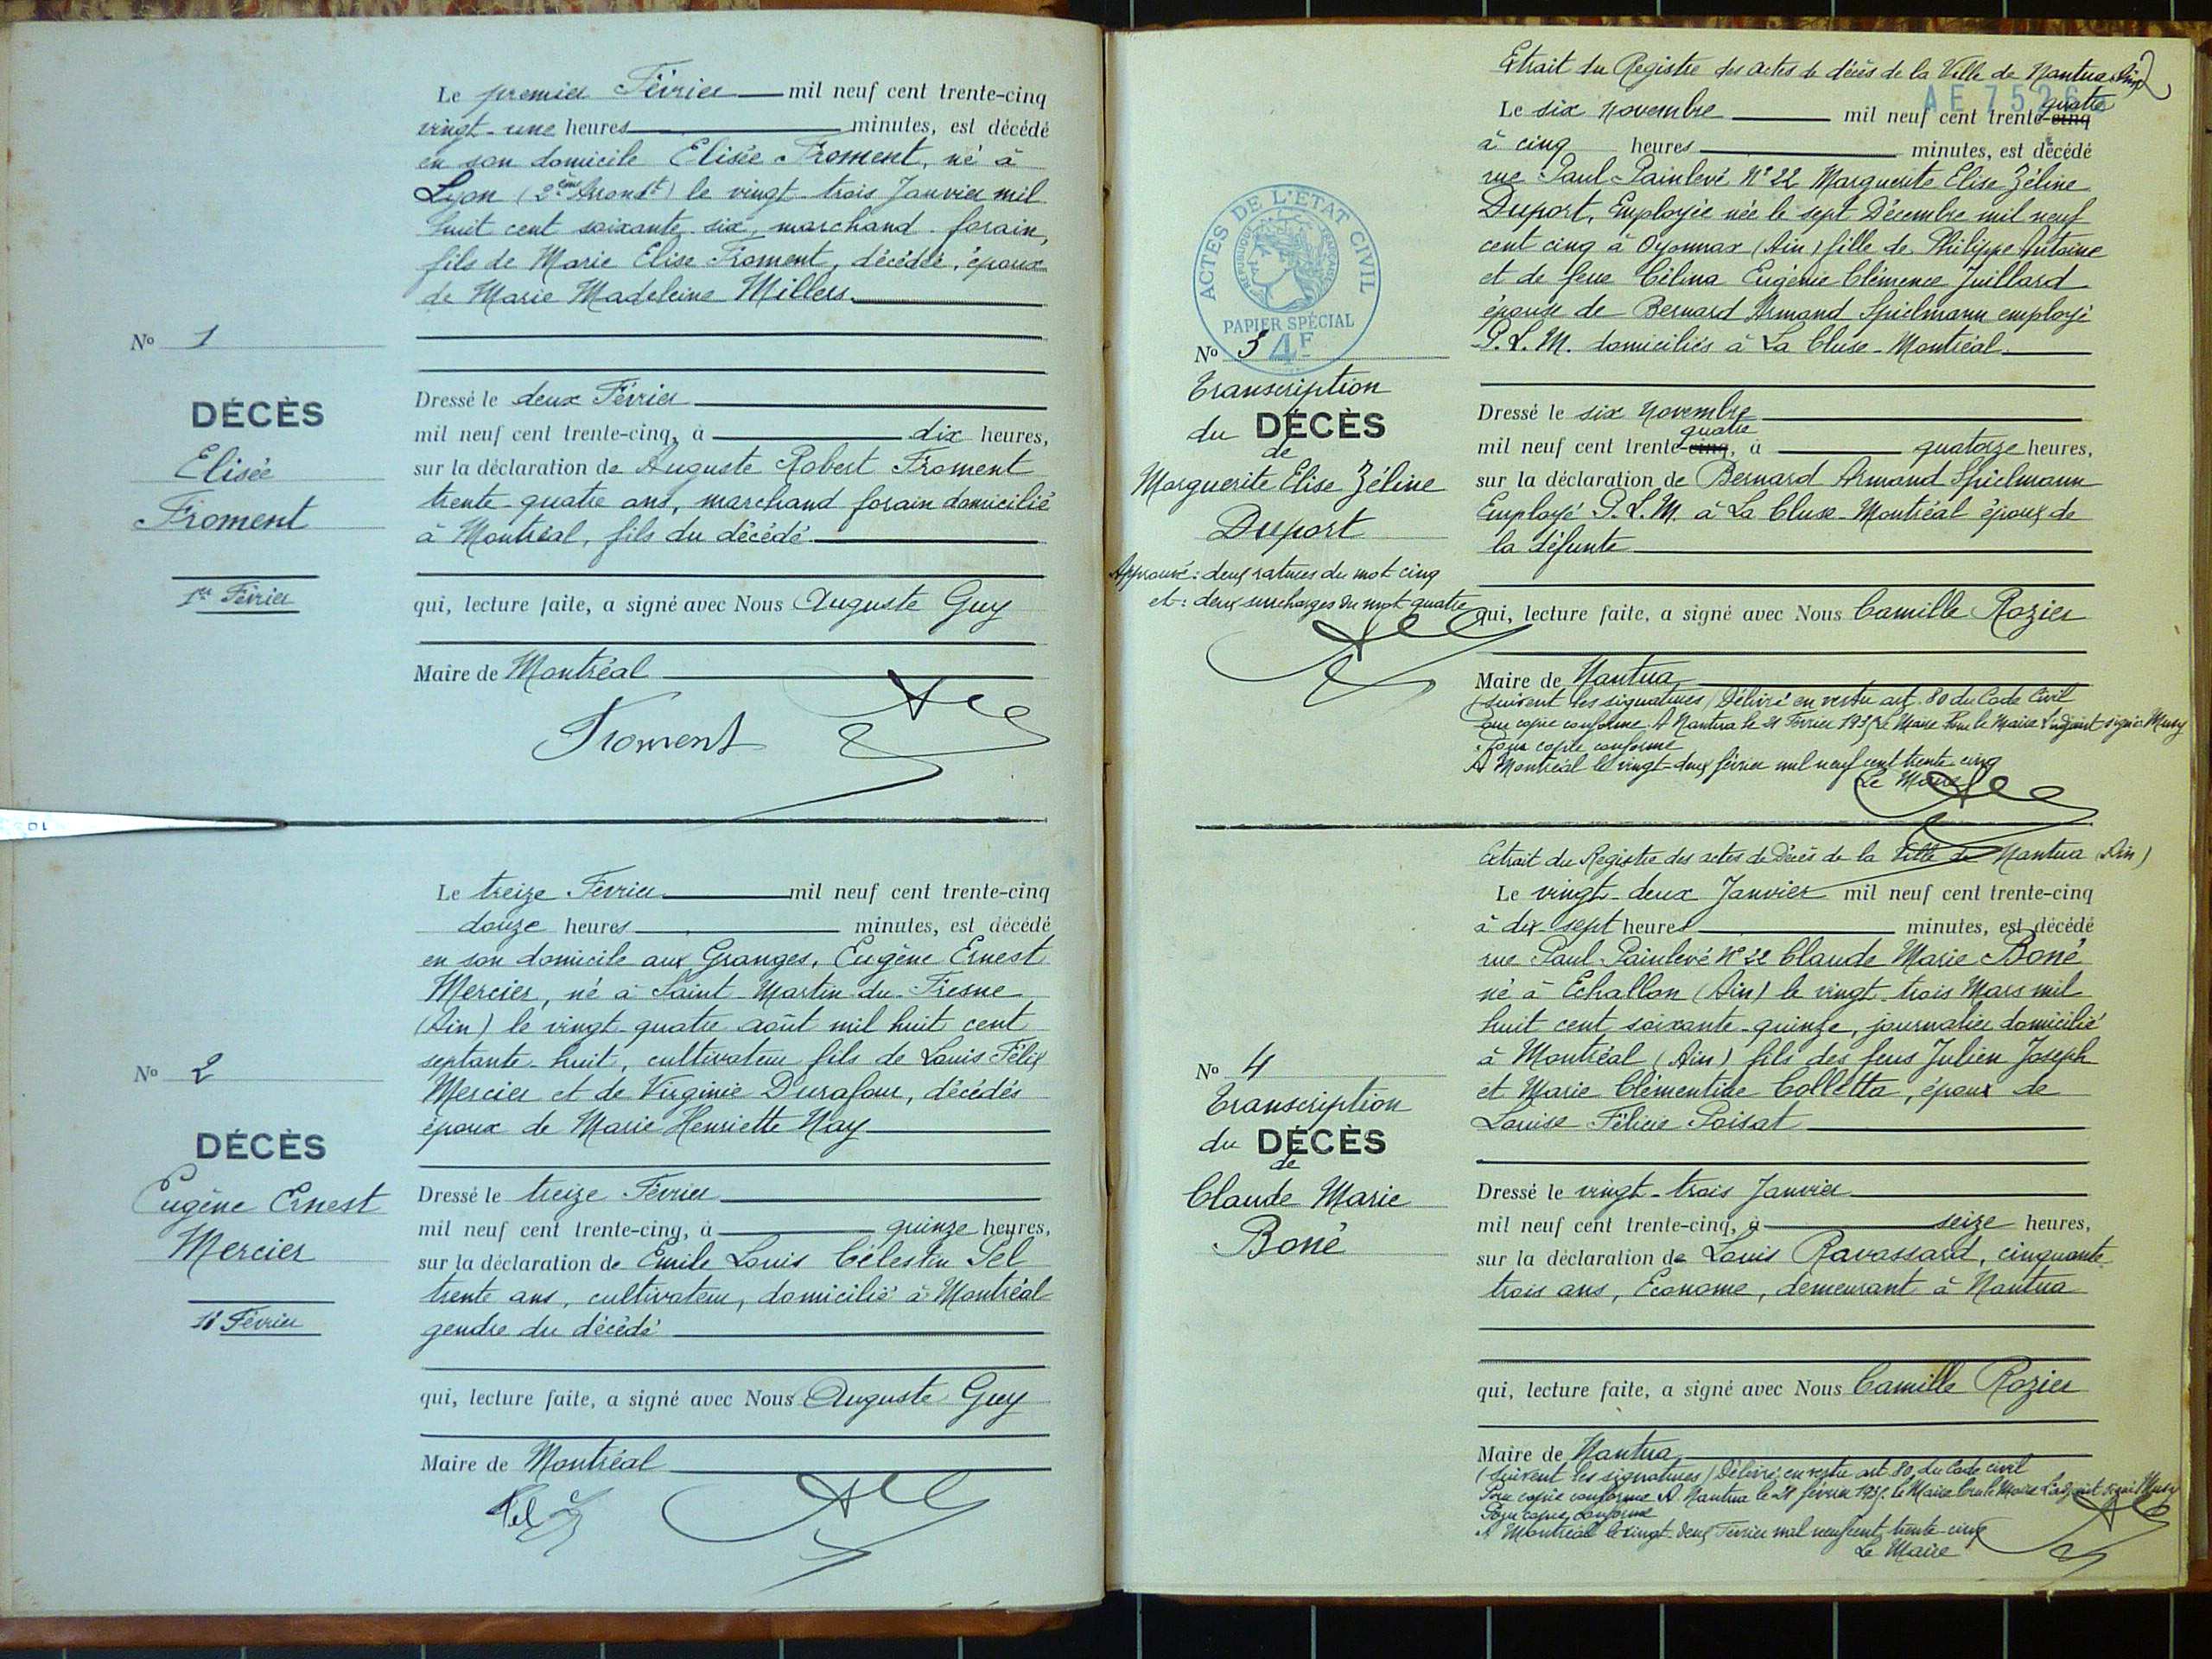 Le premier Février mil neuf cent trente-cinq
vingt-une heures minutes, est décédé
en son domicile Elisée Froment, né à
Lyon (2ème Arrondt) le vingt-trois Janvier mil
huit cent soixante-six, marchand forain,
fils de Marie Elise Froment, décédée, époux
de Marie Madeleine Millers
No 1
DÉCÈS
Elisée
Froment
1er Février
Dressé le deux Février
mil neuf cent trente-cinq, à dix heures,
sur la déclaration de Auguste Robert Froment
trente-quatre ans, marchand forain domicilié
à Montréal, fils du décédé
qui, lecture faite, a signé avec Nous Auguste Guy
Maire de Montréal
Froment
Le treize Février mil neuf cent trente-cinq
douze heures minutes, est décédé
en son domicile aux Granges, Eugène Ernest
Mercier, né à Saint-Martin-du-Fresne
(Ain) le vingt-quatre août mil huit cent
septante-huit, cultivateur fils de Louis Félix
Mercier et de Virginie Durafour, décédés
époux de Marie Henriette Nay
No 2
DÉCÈS
Eugène Ernest
Mercier
Février
Dressé le treize Février
mil neuf cent trente-cinq, à quinze heures,
sur la déclaration de Emile Louis Célestin Pel
trente ans, cultivateur, domicilié à Montréal
gendre du décédé
qui, lecture faite, a signé avec Nous Auguste Guy
Maire de Montréal
Pel
Extrait du Registre des actes de décès de la Ville de Nantua (Ain) 2
AE 752
Le six novembre mil neuf cent trente-cinq quatre
à cinq heures minutes, est décédé
rue Paul-Painlevé N° 22 Marguerite Elise Zéline
Duport, Employée née le sept Décembre mil neuf
cent cinq à Oyonnax (Ain) fille de Philippe Antoine
et de feue Célina Eugénie Clémence Juillard
épouse de Bernard Armand Spielmann employé
P.L.M. domiciliés à La Cluse-Montréal
ACTES DE L'ETAT CIVIL
REPUBLIQUE FRANÇAISE
PAPIER SPÉCIAL
4F
No 3
Transcription
du DÉCÈS
de
Marguerite Elise Zéline
Duport
Approuvé : deux ratures du mot cinq
et : deux surcharges du mot quatre
Dressé le six novembre
mil neuf cent trente-cinq quatre, à quatorze heures,
sur la déclaration de Bernard Armand Spielmann
Employé P.L.M. à La Cluse-Montréal époux de
la défunte
qui, lecture faite, a signé avec Nous Camille Rozier
Maire de Nantua
(suivent les signatures) Délivré en vertu art. 80 du Code Civil
Pour copie conforme A Nantua le 21 Février 1935 Le Maire Pour le Maire l'adjoint signé Musy
Pour copie conforme
A Montréal le vingt-deux février mil neuf cent trente-cinq
Le Maire
Extrait du Registre des actes de Décès de la Ville de Nantua (Ain)
Le vingt-deux Janvier mil neuf cent trente-cinq
à dix-sept heures minutes, est décédé
rue Paul-Painlevé N° 22 Claude Marie Boné
né à Echallon (Ain) le vingt-trois Mars mil
huit cent soixante-quinze, journalier domicilié
à Montréal (Ain) fils des feus Julien Joseph
et Marie Clémentine Colletta, époux de
Louise Félicie Poisat
No 4
Transcription
du DÉCÈS
de
Claude Marie
Boné
Dressé le vingt-trois Janvier
mil neuf cent trente-cinq, à seize heures,
sur la déclaration de Louis Ravassard, cinquante-
trois ans, Econome, demeurant à Nantua
qui, lecture faite, a signé avec Nous Camille Rozier
Maire de Nantua
(suivent les signatures) Délivré en vertu art. 80 du Code civil
Pour copie conforme A Nantua le 21 février 1935. Le Maire Pour le Maire L'adjoint signé Musy
Pour copie conforme
A Montréal le vingt-deux Février mil neuf cent trente-cinq
Le Maire